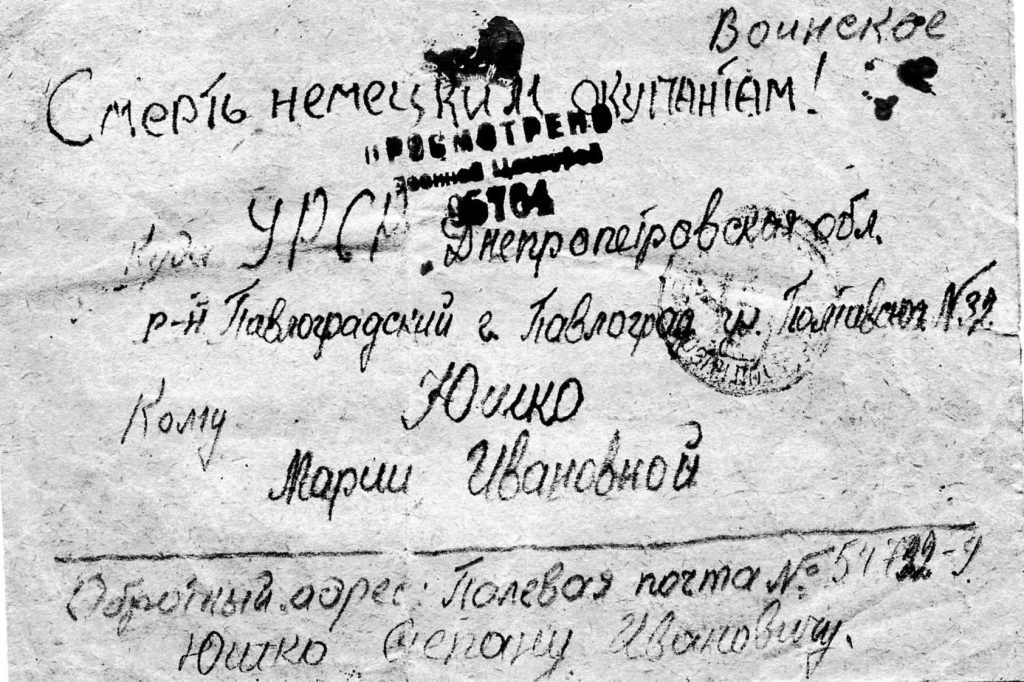 Воинское
Смерть немецким окупантам!
ПРОСМОТРЕНО
Военной Цензурой
Куда УРСР Днепропетровская обл.
р-н Павлоградский г. Павлоград ул. Полтавская N.32.
Кому Юшко
Марии Ивановной
Обротный адрес: Полевая почта №
Юшко Степану Ивановичу.